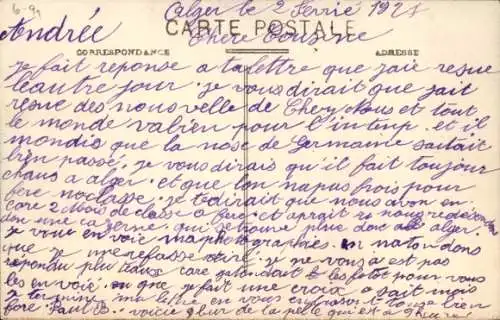 6-9
Alger le 2 Fevrie 192
CARTE POSTALE
Andrée
Chere Cousine
CORRESPONDANCE
ADRESSE
je fait reponse a ta lettre que jaie resue
leautre jour je vous dirait que jait
resue des nouvelle de Chez Nous et tout
le monde va bien pour l'instup. et il
mondis que la nose de Germaine saitait
bien passé. je vous dirais qu'il fait toujour
chaus a alger. et que lon napas frois pour
fere noclasse. je te dirait que nous avon en
core 2 Mois de classe a fere et aprait
don une cazerne. qui se trouve plus a alger.
je vous en voie ma photographies. en natandons
que je me refasse tiré. je ne vous a est pas
repondu plu taux care gatandait les fotot pour vous
les en voié. ou que je fait une croix a sait mois
je termine ma letre en vous enbrasent tous bien
fore. Paul B. voicie